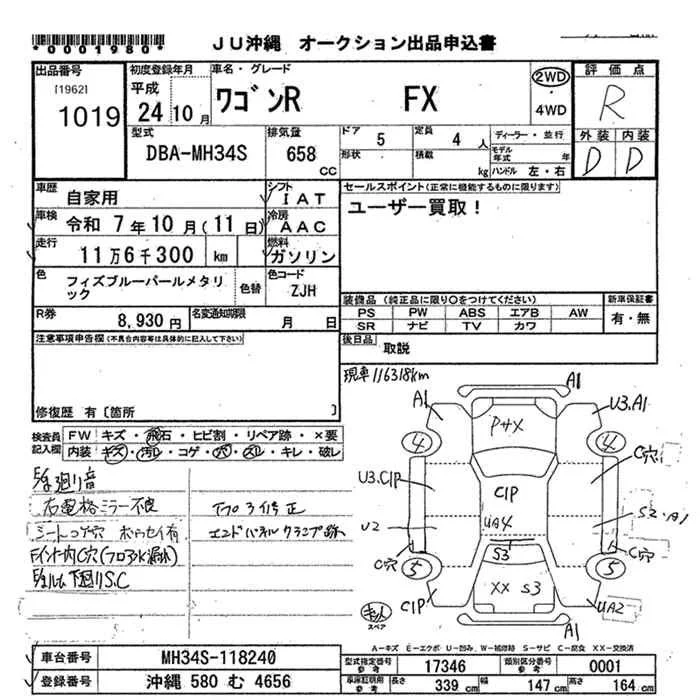 *0001980*
JU沖縄 オークション出品申込書
出品番号
[1962]
1019
初度登録年月
平成
24 10月
車名・グレード
ワゴンR FX
2WD
・
4WD
評価点
R
外装 内装
D D
型式
DBA-MH34S
排気量
658 cc
ドア 5
形状
定員 4 人
積載 kg
ディーラー・並行
モデル年式 年
ハンドル 左・右
車歴 自家用
シフト IAT
車検 令和 7年10月(11日)
冷房 AAC
走行 11万6千300 km
燃料 ガソリン
色 フィズブルーパールメタリック
色替
色コード ZJH
R券 8,930円
名変通知期限 月 日
セールスポイント(正常に機能するものに限ります)
ユーザー買取!
装備品(純正品に限り〇をつけてください)
新車保証書
PS PW ABS エアB AW
SR ナビ TV カワ
有・無
後日品 取説
注意事項申告欄(不具合内容等は具体的に記入して下さい)
修復歴 有〔箇所 〕
検査員記入欄
FW キズ・飛石・ヒビ割・リペア跡・×要
内装 キズ・汚レ・コゲ・穴・スレ・キレ・破レ
右電格ミラー不良
シートコゲ穴
下廻りS.C
エンドパネルクランプ跡
現車116318km
A1
A1
U3.A1
P+X
4
4
C穴
U3.C1P
C1P
U2
UA4
S2・A1
S3
C穴
C穴
5
5
XX S3
C1P
UA2
A1
スペア
A-キズ E-エクボ U-凹み、W-補修跡 S-サビ C-腐食 XX-交換済
車台番号 MH34S-118240
登録番号 沖縄 580 む 4656
型式指定番号 参考 17346
類別区分番号 参考 0001
車庫証明用 参考 長さ 339 cm 幅 147 cm 高さ 164 cm